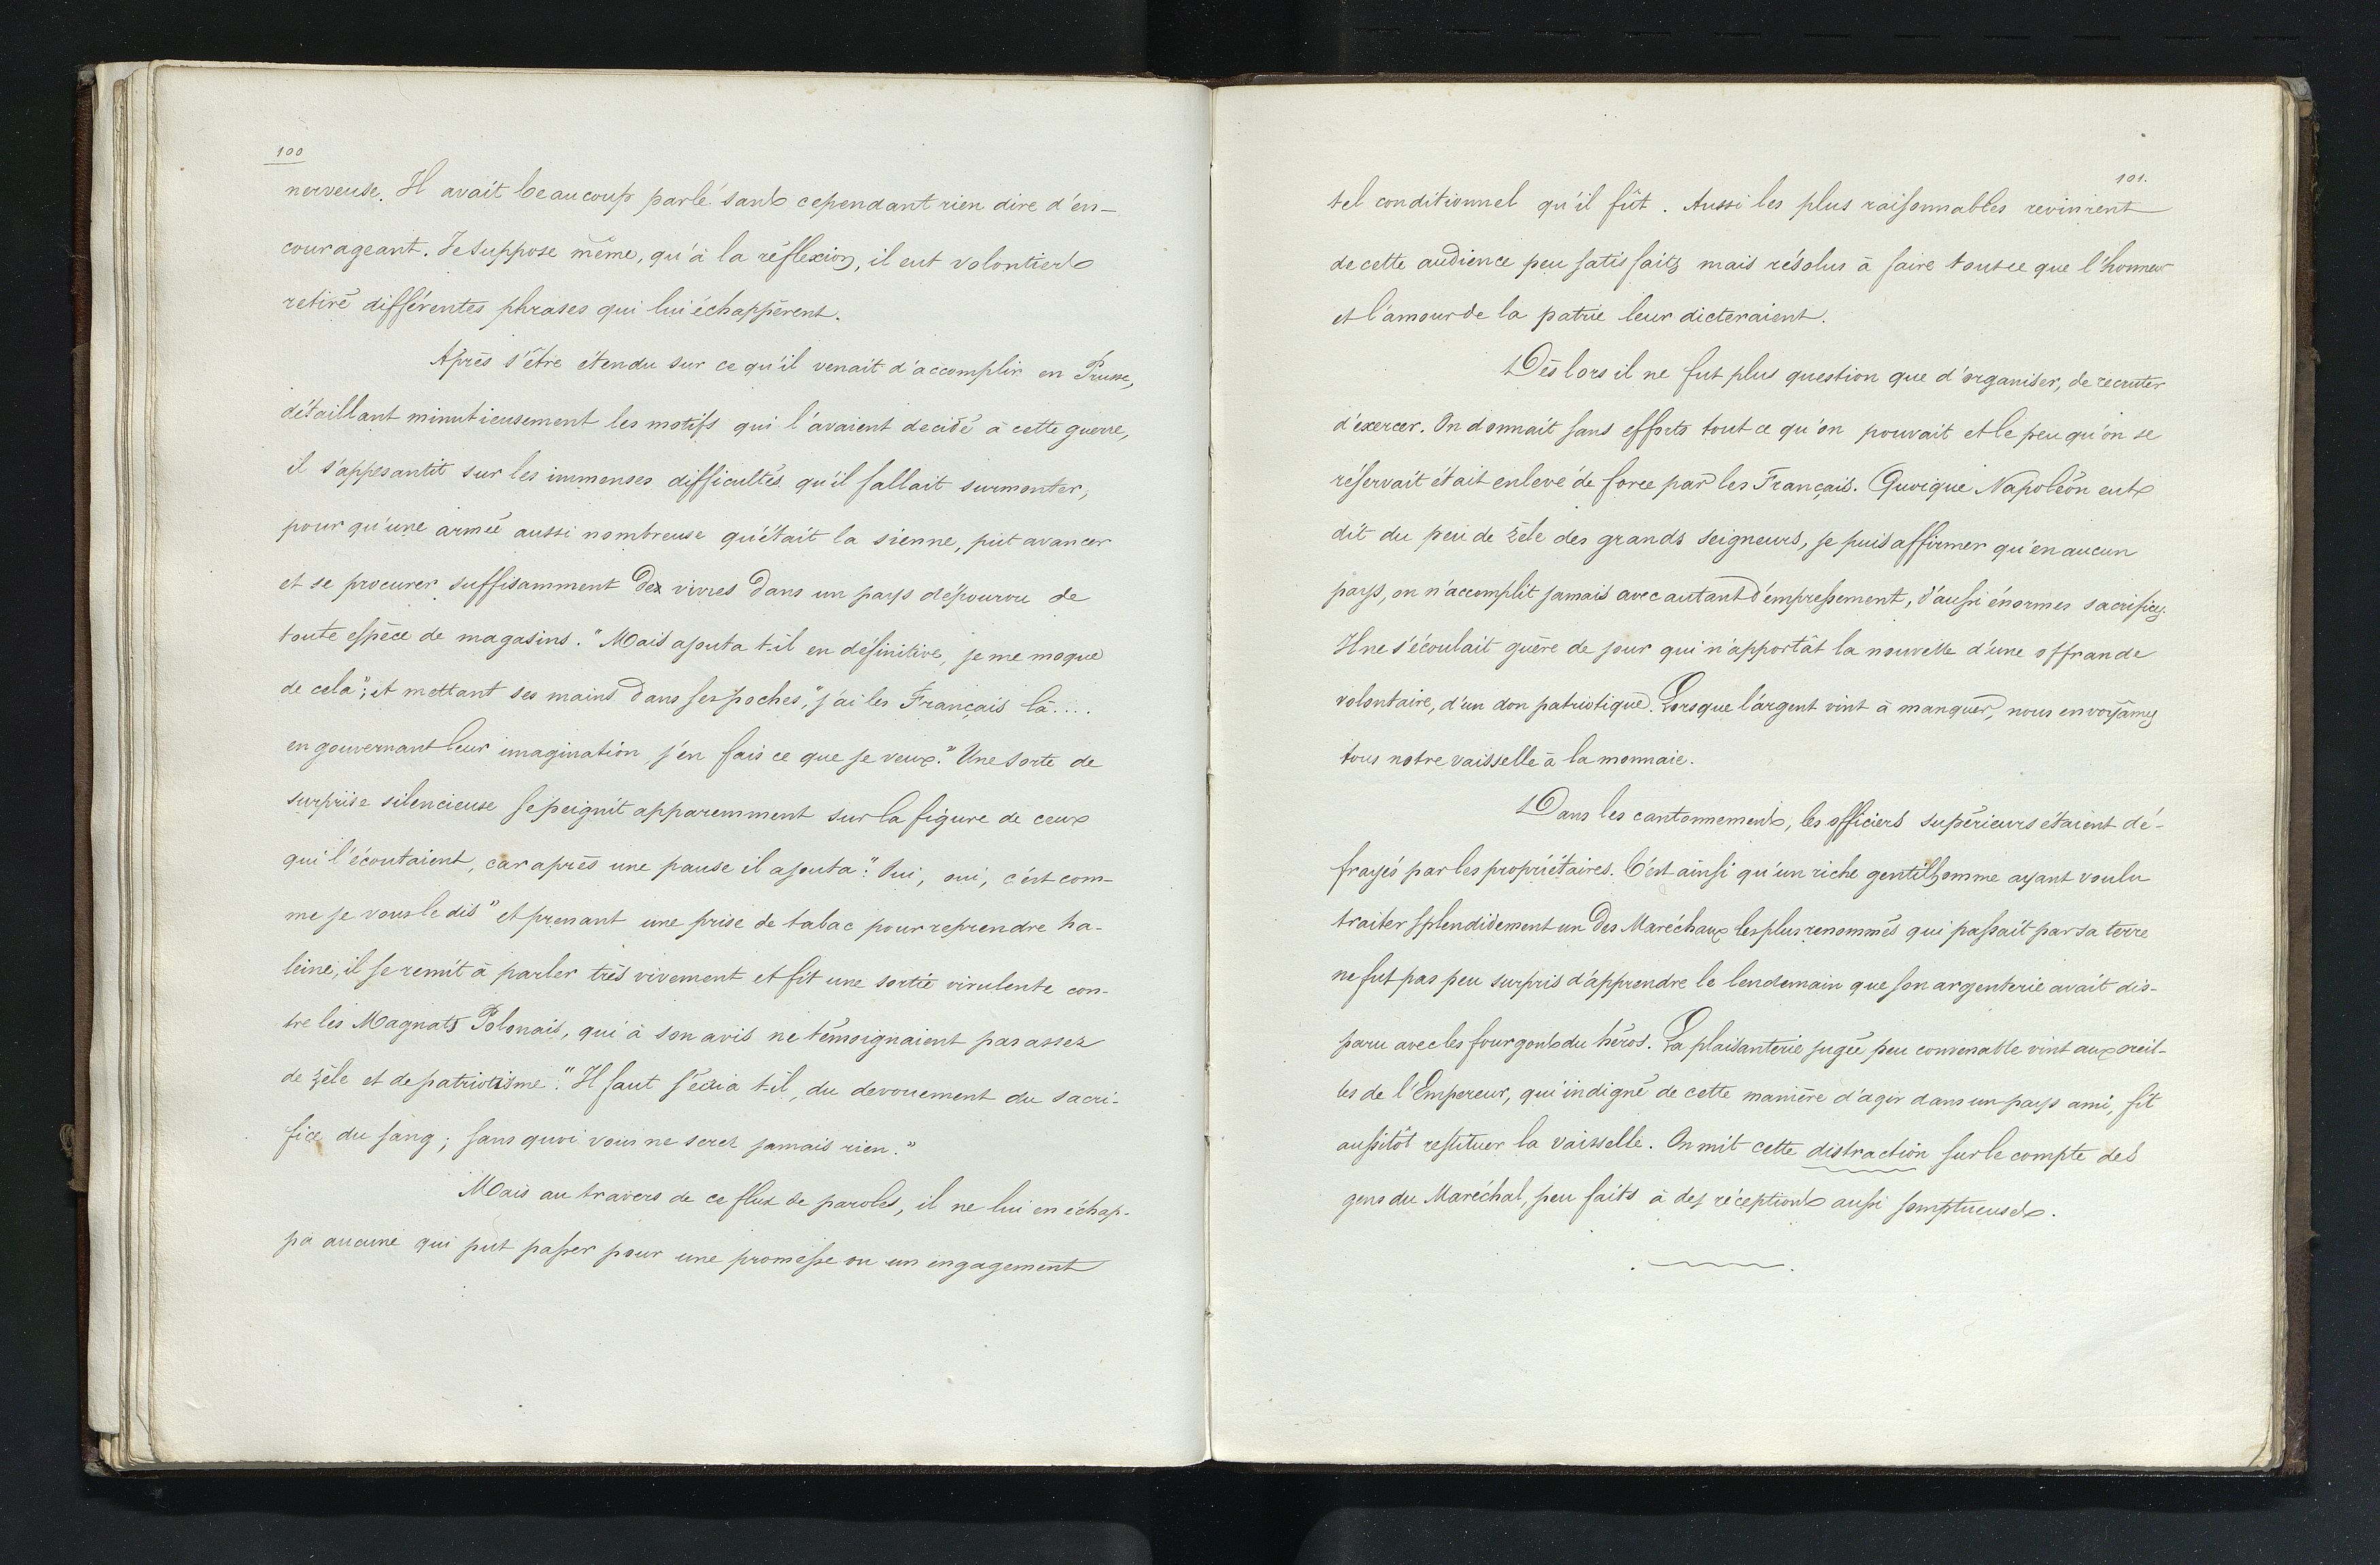 100
nerveuse. Il avait beaucoup parlé sans cependant rien dire d'en-
courageant. Je suppose même, qu'à la réflexion, il eut volontiers
retiré différentes phrases qui lui échappèrent.
Après s'être étendu sur ce qu'il venait d'accomplir en Prusse,
détaillant minutieusement les motifs qui l'avaient decidé à cette guerre,
il s'appesantit sur les immenses difficultés qu'il fallait surmonter,
pour qu'une armée aussi nombreuse qu'était la sienne, pût avancer
et se procurer suffisamment de vivres dans un pays dépourvu de
toute espèce de magasins. "Mais ajouta t-il en définitive, je me moque
de cela"; et mettant ses mains dans ses poches, "j'ai les Français là....
en gouvernant leur imagination j'en fais ce que je veux." Une sorte de
surprise silencieuse se peignit apparemment sur la figure de ceux
qui l'écoutaient, car après une pause il ajouta: "Oui, oui, c'est com-
me je vous le dis" et prenant une prise de tabac pour reprendre ha-
leine, il se remit à parler très vivement et fit une sortie virulente con-
tre les Magnats Polonais, qui à son avis ne témoignaient pas assez
de zèle et de patriotisme. "Il faut s'écria t-il, du devouement du sacri-
fice du sang; sans quoi vous ne serez jamais rien."
Mais au travers de ce flux de paroles, il ne lui en échap-
pa aucune qui put passer pour une promesse ou un engagement
101.
tel conditionnel qu'il fût. Aussi les plus raisonnables revinrent
de cette audience peu satisfaits mais résolus à faire tout ce que l'honneur
et l'amour de la patrie leur dicteraient.
Dès lors il ne fut plus question que d'organiser, de recruter
d'exercer. On donnait sans efforts tout ce qu'on pouvait et le peu qu'on se
réservait était enlevé de force par les Français. Quoique Napoléon eut
dit du peu de zèle des grands seigneurs, je puis affirmer qu'en aucun
pays, on n'accomplit jamais avec autant d'empressement, d'aussi énormes sacrifices.
Il ne s'écoulait guère de jour qui n'apportât la nouvelle d'une offrande
volontaire, d'un don patriotique. Lorsque l'argent vint à manquer, nous envoyâmes
tous notre vaisselle à la monnaie.
Dans les cantonnements, les officiers supérieurs étaient dé-
frayés par les propriétaires. C'est ainsi qu'un riche gentilhomme ayant voulu
traiter splendidement un des Maréchaux les plus renommés qui passait par sa terre
ne fut pas peu surpris d'apprendre le lendemain que son argenterie avait dis-
paru avec les fourgons du héros. La plaisanterie jugée peu convenable vint aux oreil-
les de l'Empereur, qui indigné de cette manière d'agir dans un pays ami, fit
aussitôt restituer la vaisselle. On mit cette distraction sur le compte des
gens du Maréchal, peu faits à des réceptions aussi somptueuses.